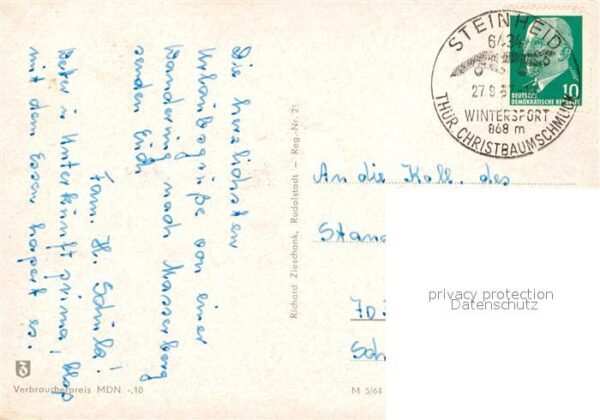 Die herzlichsten
Urlaubsgrüße von einer
Wanderung nach Masserberg
senden Euch
Fam. H. Schula!
Wetter u. Unterkunft prima, blos
mit dem Essen hapert es.
STEINHEID
6434
27.9.67
WINTERSPORT
868 m
THÜR. CHRISTBAUMSCHMUCK
10
DEUTSCHE
DEMOKRATISCHE REPUBLIK
An die Koll. des
Stand
703
Sch
Richard Zieschank, Rudolstadt — Reg.-Nr. 21
Verbraucherpreis MDN -,10
M 5/64
privacy protection
Datenschutz